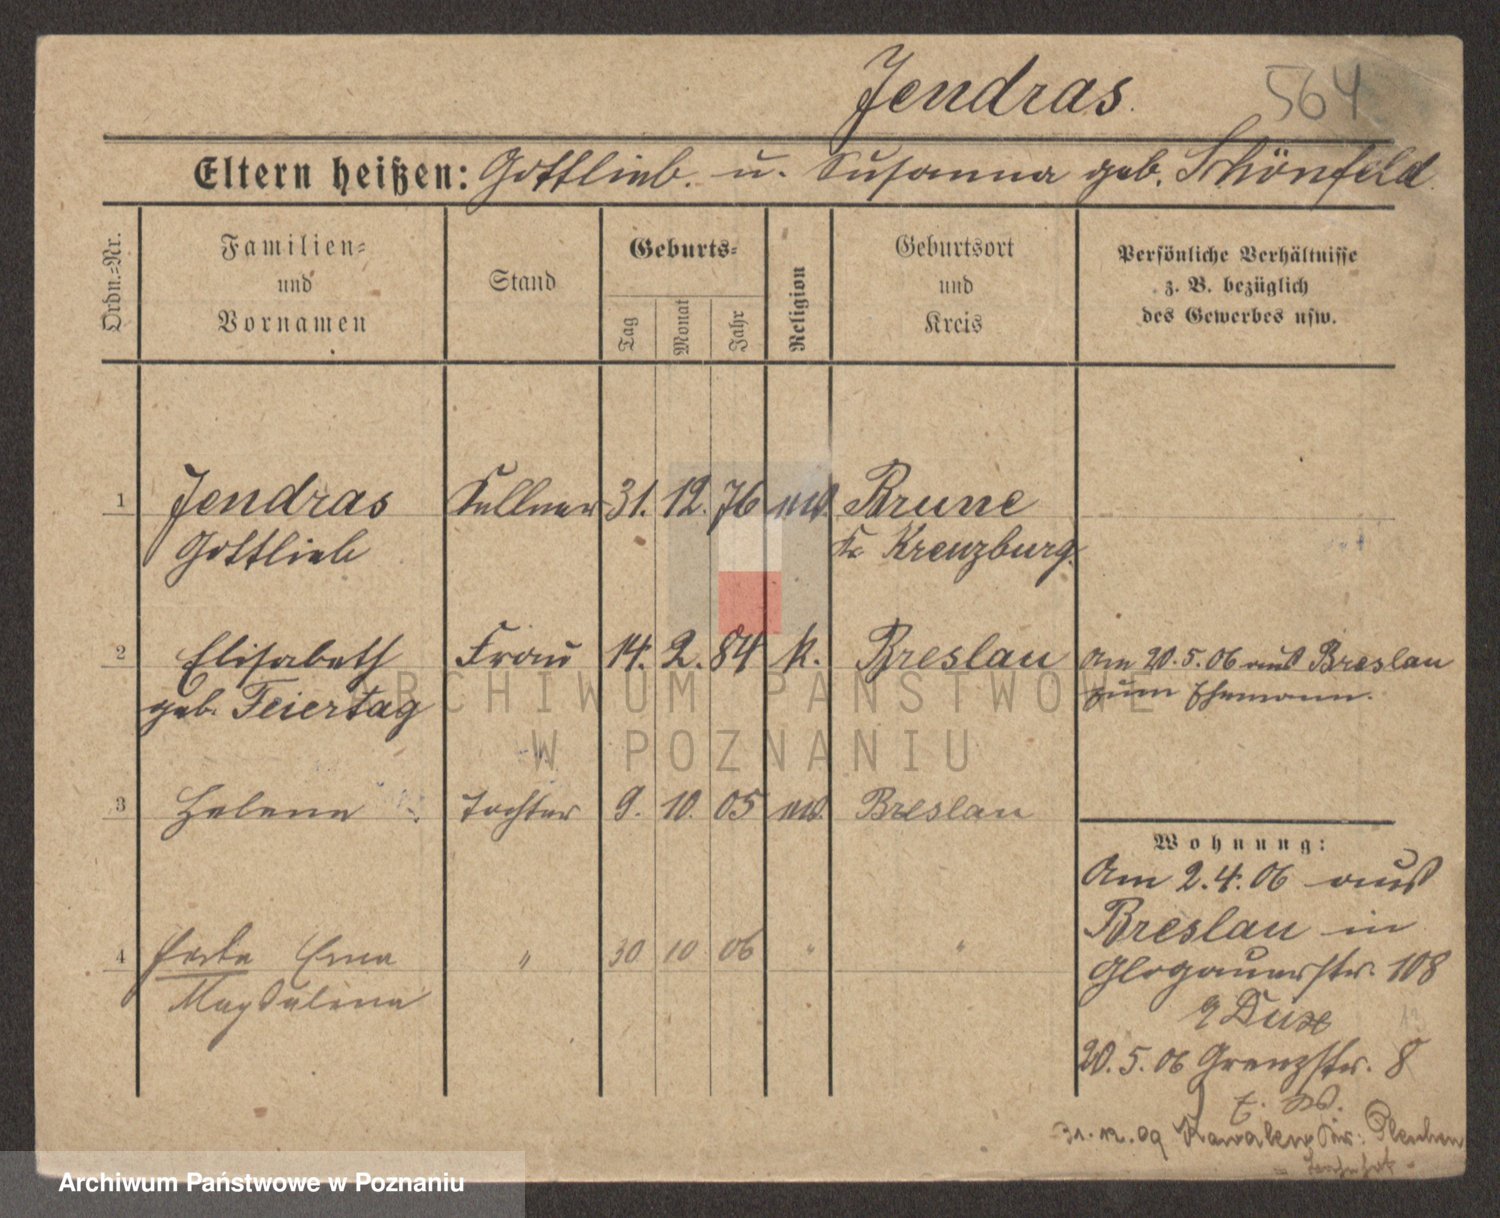 Jendras.
564
Eltern heißen: Gottlieb. u. Susanna geb. Schönfeld.
Ordn.=Nr.
Familien=
und
Vornamen
Stand
Geburts=
Tag
Monat
Jahr
Religion
Geburtsort
und
Kreis
Persönliche Verhältnisse
z. B. bezüglich
des Gewerbes usw.
1 Jendras Kellner 31. 12. 76 ev. Brune
Gottlieb Kr. Kreuzburg.
2 Elisabeth Frau 14. 2. 84 k. Breslau Am 20.5.06 aus Breslau
geb. Feiertag zum Ehemann.
3 Helene Tochter 9. 10. 05 ev. Breslau
4 Herta Erna " 30 10 06 " "
Magdalena
Wohnung:
Am 2.4.06 aus
Breslau in
Glogauerstr. 108
20.5.06 Grenzstr. 8
E. W.
31.12.09
ARCHIWUM PAŃSTWOWE
W POZNANIU
Archiwum Państwowe w Poznaniu